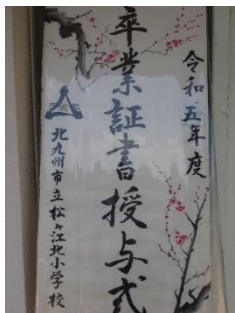 令和五年度
卒業証書授与式
北九州市立松ヶ江北小学校